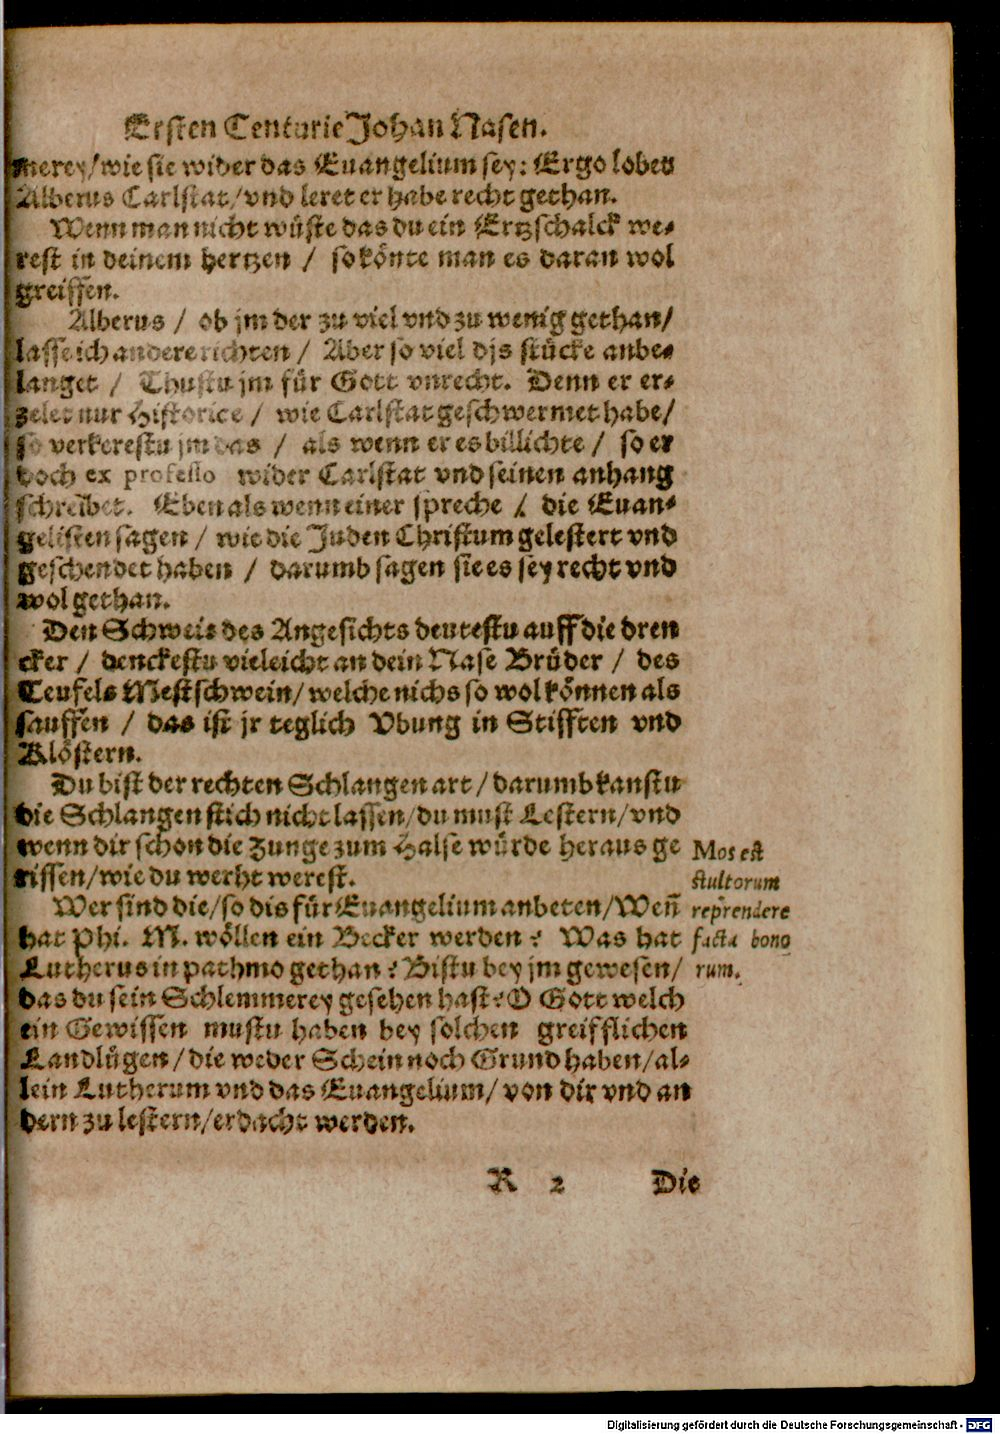 Ersten Centurie Johan Nasen.
merey/wie sie wider das Euangelium sey: Ergo lobet
Alberus Carlstat/vnd leret er habe recht gethan.
Wenn man nicht wüste das du ein Ertzschalck we-
rest in deinem hertzen / so könte man es daran wol
greiffen.
Alberus / ob jm der zu viel vnd zu wenig gethan/
lasse ich andere richten / Aber so viel dis stücke anbe-
langet / Thustu jm für Gott vnrecht. Denn er er-
zelet nur Historice / wie Carlstat geschwermet habe/
so verkerestu jm das / als wenn er es billichte / so er
doch ex professo wider Carlstat vnd seinen anhang
schreibet. Eben als wenn einer spreche / die Euan-
gelisten sagen / wie die Juden Christum gelestert vnd
geschendet haben / darumb sagen sie es sey recht vnd
wol gethan.
Den Schweis des Angesichts deutestu auff die dren
cker / denckestu vieleicht an dein Nase Brüder / des
Teufels Mestschwein/welche nichs so wol können als
sauffen / das ist jr teglich Vbung in Stifften vnd
Klöstern.
Du bist der rechten Schlangen art/darumb kanstu
die Schlangen stich nicht lassen/du must Lestern/vnd
wenn dir schon die Zunge zum Halse würde heraus ge
rissen/wie du werht werest.
Wer sind die/so dis für Euangelium anbeten/Weñ
hat Phi. M. wöllen ein Becker werden? Was hat
Lutherus in pathmo gethan? Bistu bey jm gewesen/
das du sein Schlemmerey gesehen hast? O Gott welch
ein Gewissen mustu haben bey solchen greifflichen
Landlügen/die weder Schein noch Grund haben/al-
lein Lutherum vnd das Euangelium/ von dir vnd an
dern zu lestern/erdacht werden.
Mos est
stultorum
reprendere
facta bono
rum.
R 2 Die
Digitalisierung gefördert durch die Deutsche Forschungsgemeinschaft - DFG